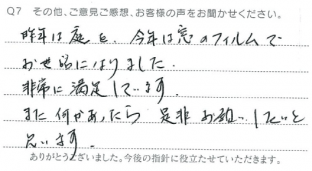 Q7 その他、ご意見ご感想、お客様の声をお聞かせください。
昨年は庭を、今年は窓のフィルムで
お世話になりました。
非常に満足しています。
また何かあったら 是非お願いしたいと
思います。
ありがとうございました。今後の指針に役立たせていただきます。